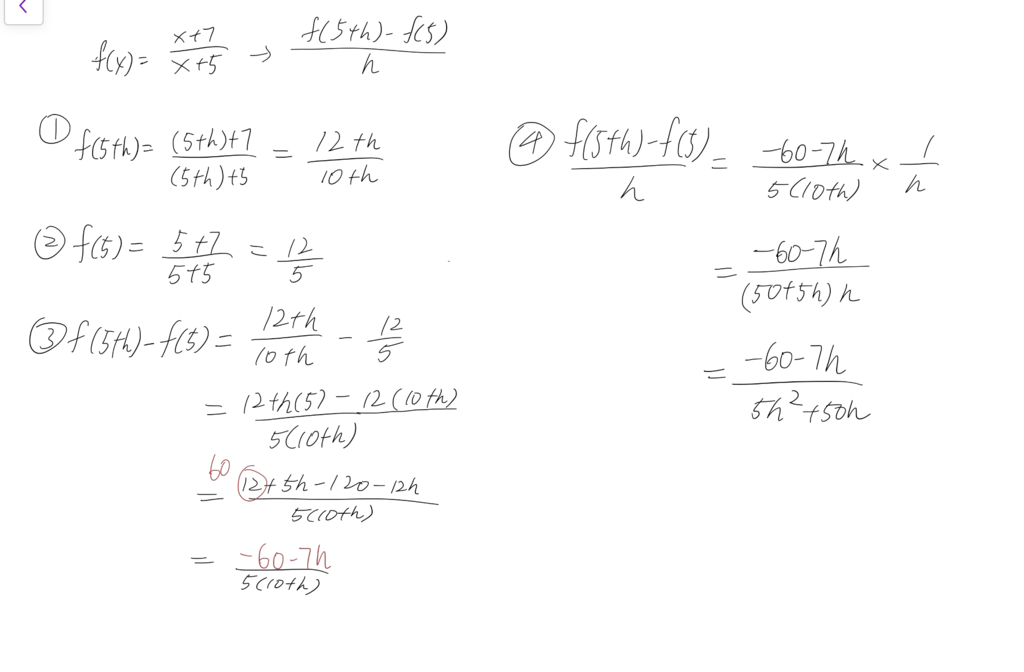 f(x) = (x+7)/(x+5) → (f(5+h) - f(5))/h
① f(5+h) = ((5+h)+7)/((5+h)+5) = (12+h)/(10+h)
② f(5) = (5+7)/(5+5) = 12/5
③ f(5+h) - f(5) = (12+h)/(10+h) - 12/5
= (12+h(5) - 12(10+h))/(5(10+h))
60
= (12+5h-120-12h)/(5(10+h))
= (-60-7h)/(5(10+h))
④ (f(5+h) - f(5))/h = (-60-7h)/(5(10+h)) × 1/h
= (-60-7h)/((50+5h)h)
= (-60-7h)/(5h²+50h)